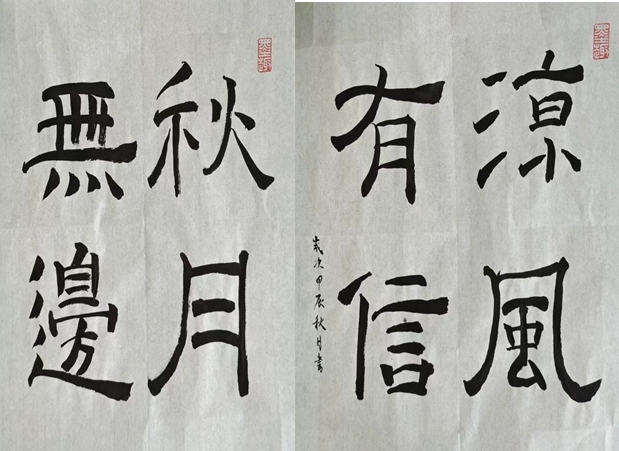 涼風
有信
歲次甲辰秋月書
秋月
無邊